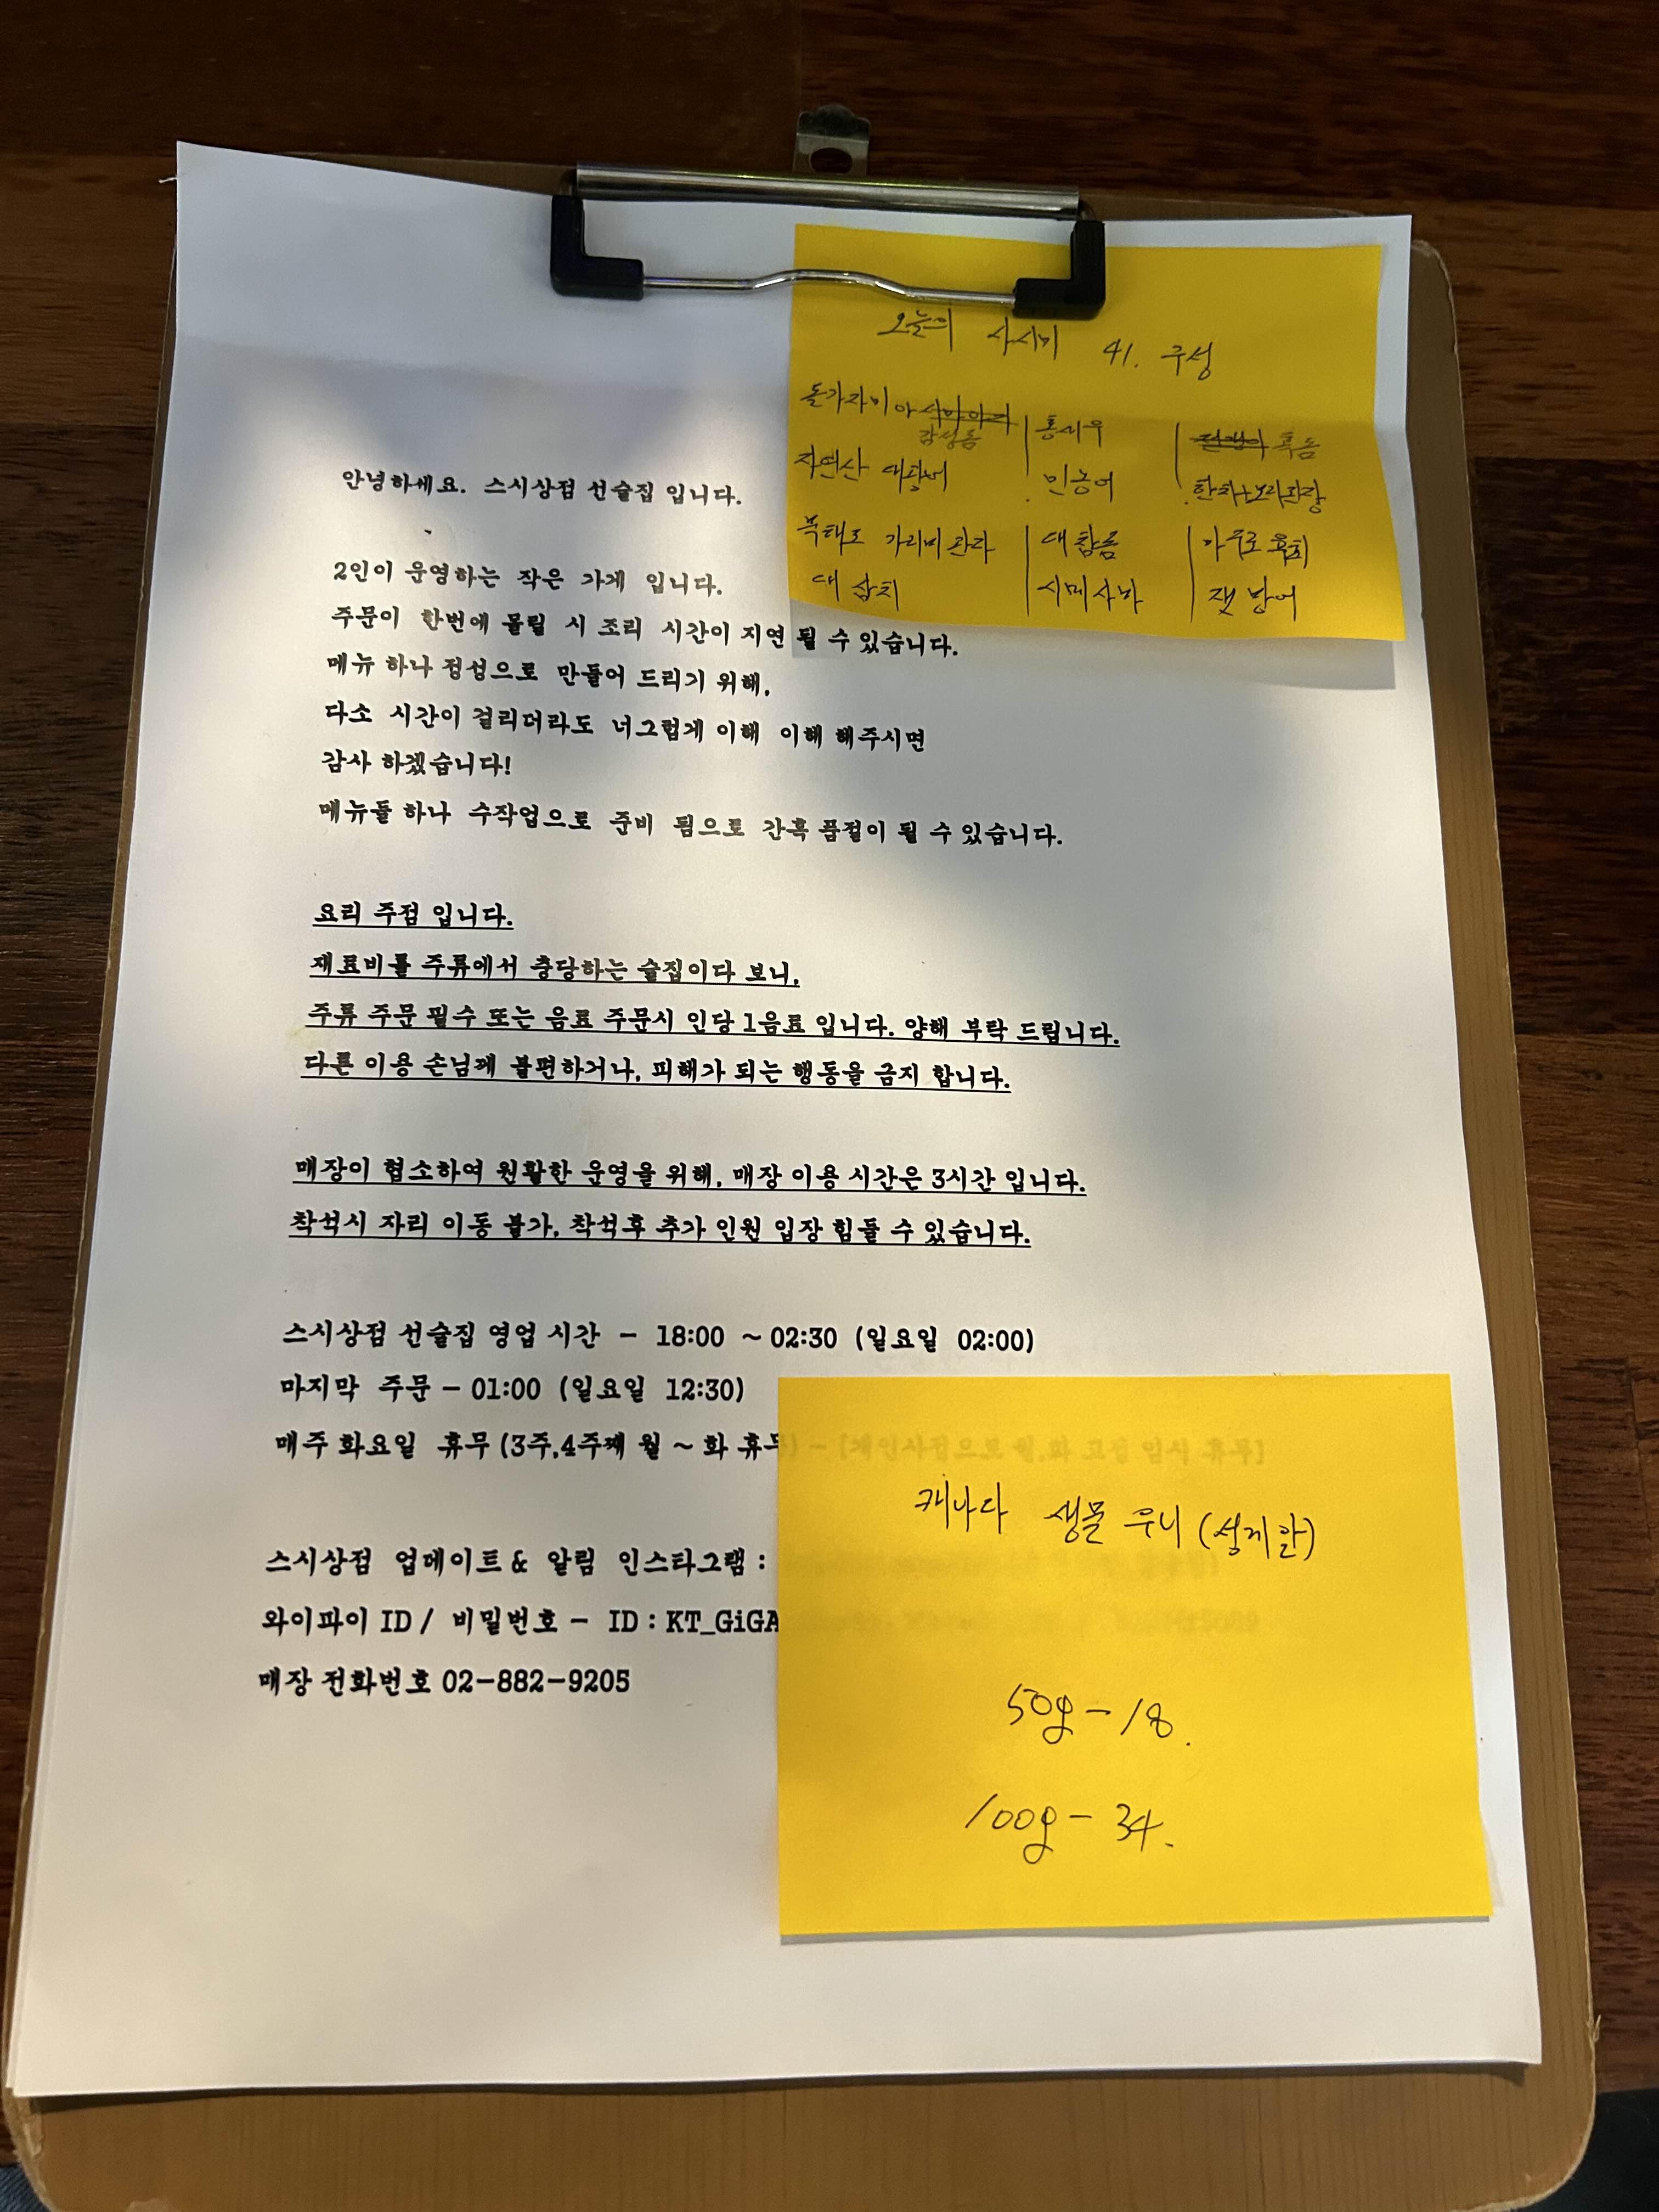 오늘의 사시미 41. 구성
돌가자미 감성돔 | 홍새우 | 흑돔
자연산 대광어 | 민농어 | 한치+보라관장
북해도 가리비관자 | 대참돔 | 아부로 훅치
대삼치 | 시메사바 | 잿방어
안녕하세요. 스시상점 선술집 입니다.
2인이 운영하는 작은 가게 입니다.
주문이 한번에 몰릴 시 조리 시간이 지연 될 수 있습니다.
메뉴 하나 정성으로 만들어 드리기 위해,
다소 시간이 걸리더라도 너그럽게 이해 이해 해주시면
감사 하겠습니다!
메뉴들 하나 수작업으로 준비 됨으로 간혹 품절이 될 수 있습니다.
요리 주점 입니다.
재료비를 주류에서 충당하는 술집이다 보니,
주류 주문 필수 또는 음료 주문시 인당 1음료 입니다. 양해 부탁 드립니다.
다른 이용 손님께 불편하거나, 피해가 되는 행동을 금지 합니다.
매장이 협소하여 원활한 운영을 위해, 매장 이용 시간은 3시간 입니다.
착석시 자리 이동 불가, 착석후 추가 인원 입장 힘들 수 있습니다.
스시상점 선술집 영업 시간 - 18:00 ~ 02:30 (일요일 02:00)
마지막 주문 - 01:00 (일요일 12:30)
매주 화요일 휴무 (3주,4주째 월 ~ 화 휴무) - [개인사정으로 월,화 고정 임시 휴무]
스시상점 업데이트& 알림 인스타그램 :
와이파이 ID / 비밀번호 - ID : KT_GiGA
매장 전화번호 02-882-9205
캐나다 생물 우니 (성게알)
50g - 18.
100g - 34.